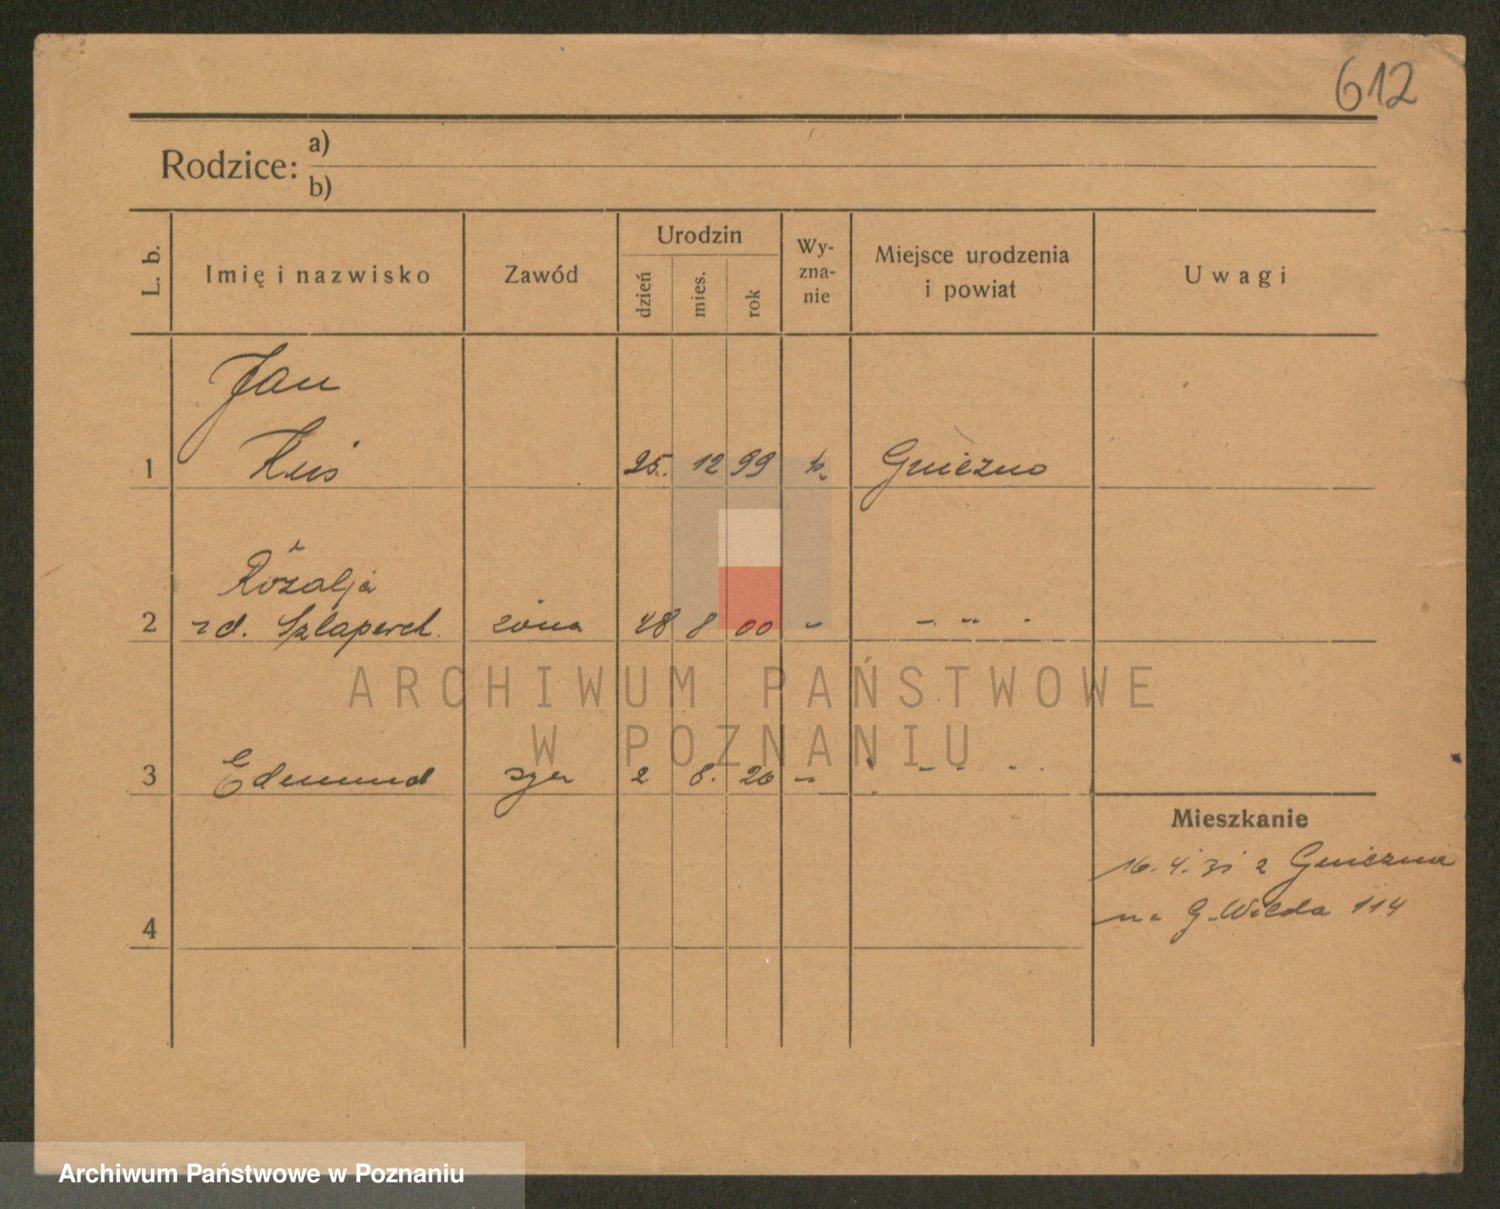 612
Rodzice: a)
b)
L. b.
Imię i nazwisko
Zawód
Urodzin
dzień
mies.
rok
Wy-
zna-
nie
Miejsce urodzenia
i powiat
Uwagi
Jan
1 25. 12 99 Gniezno
Rózalja
2 zd. żona 8 00 - - " -
3 Edmund syn 2 8. 20 - - - -
Mieszkanie
16.4.31 z Gniezna
na G. Wilda 114
4
ARCHIWUM PAŃSTWOWE
W POZNANIU
Archiwum Państwowe w Poznaniu